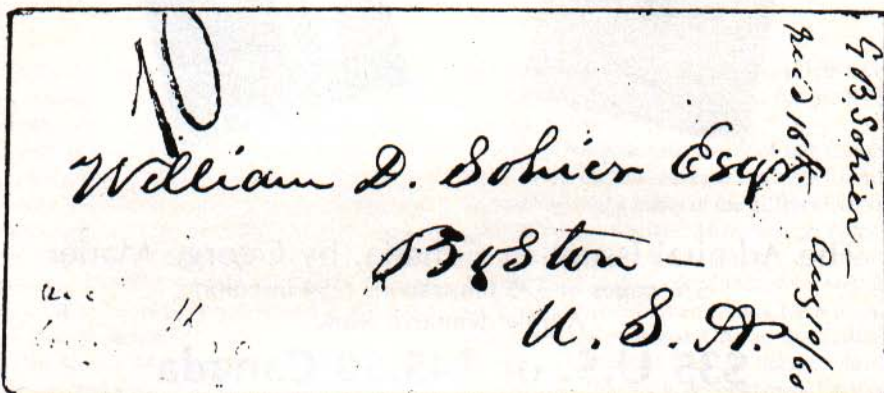 10
William D. Sohier Esqr.
Boston
U. S. A.
G. B. Sohier
Aug 10/60
rec'd 16th